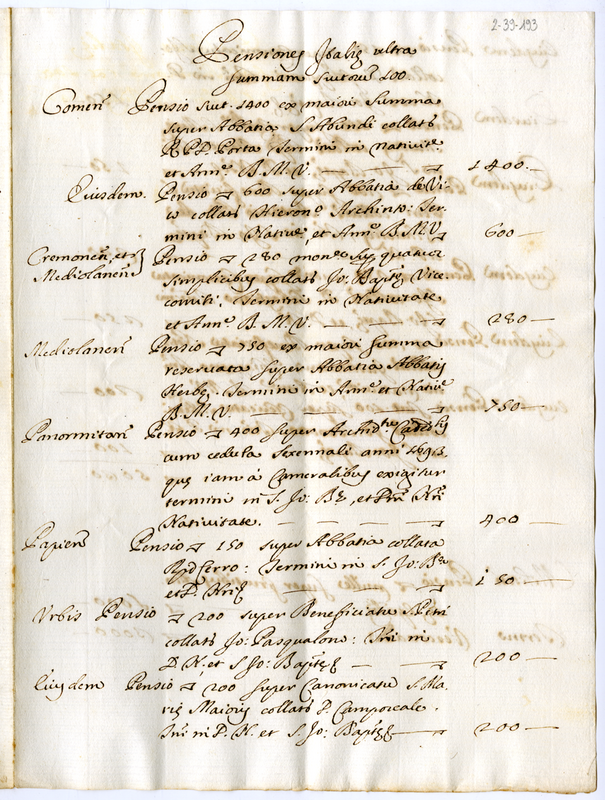 2-39-193
Pensiones Italię ultra
summam Scutorū 100.
Comen̄ Pensio scut. 1400 ex maiori summa
super Abbatia S. Abundi collata
R.P.D. Porta Termini in Nativit.e
et Ann.e B. M. V. 1400.
Eiusdem. Pensio 600 super Abbatia de Vi-
co collata Hieron.o Archinto: Ter-
mini in Nativ.e, et Ann.e B. M. V. 600
Cremonen̄, et Pensio 280 monet sup. quatuor
Mediolanen̄ simplicibus collatis Jo: Baptę Vice
comiti. Termini in Nativitate
et Ann.e B. M. V. 280
Mediolanen̄ Pensio 750 ex maiori summa
reservata super Abbatia Abbatię
Herbę. Termini in Ann.e et Nativ.e
B. M. V. 750
Panormitan̄ Pensio 400 super Archid.tu
cum cedula sexennali anni 1693.
quę iam à Cameralibus exigitur
termini in S. Jo: B.ę, et
Nativitate. 400
Papien̄ Pensio 150 super Abbatia collata
ferro: Termini in S. Jo: B.a
et D. 150
Urbis Pensio 200 super Beneficiatu S. Petri
collato Jo: Pasqualono: in
D. N. et S. Jo: Baptę 200
Eiusdem Pensio 200 super Canonicatu S. Ma-
rię Maioris collato P. Camporeale.
in D. N. et S. Jo: Baptę 200